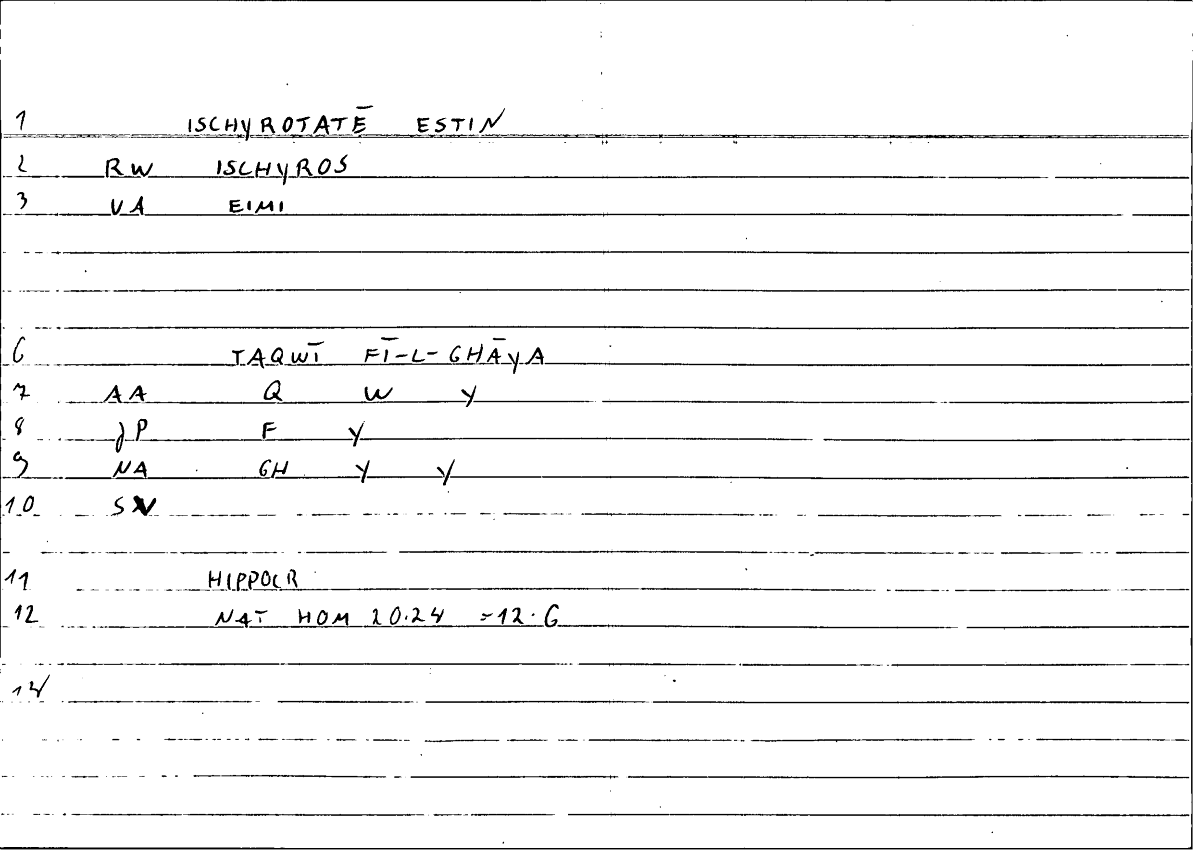 1 ISCHYROTATĒ ESTIN
2 RW ISCHYROS
3 VA EIMI
6 TAQWĪ FĪ-L-GHĀYA
7 AA Q W Y
8 JP F Y
9 NA GH Y Y
10 SV
11 HIPPOCR
12 NAT HOM 20.24 =12.6
14